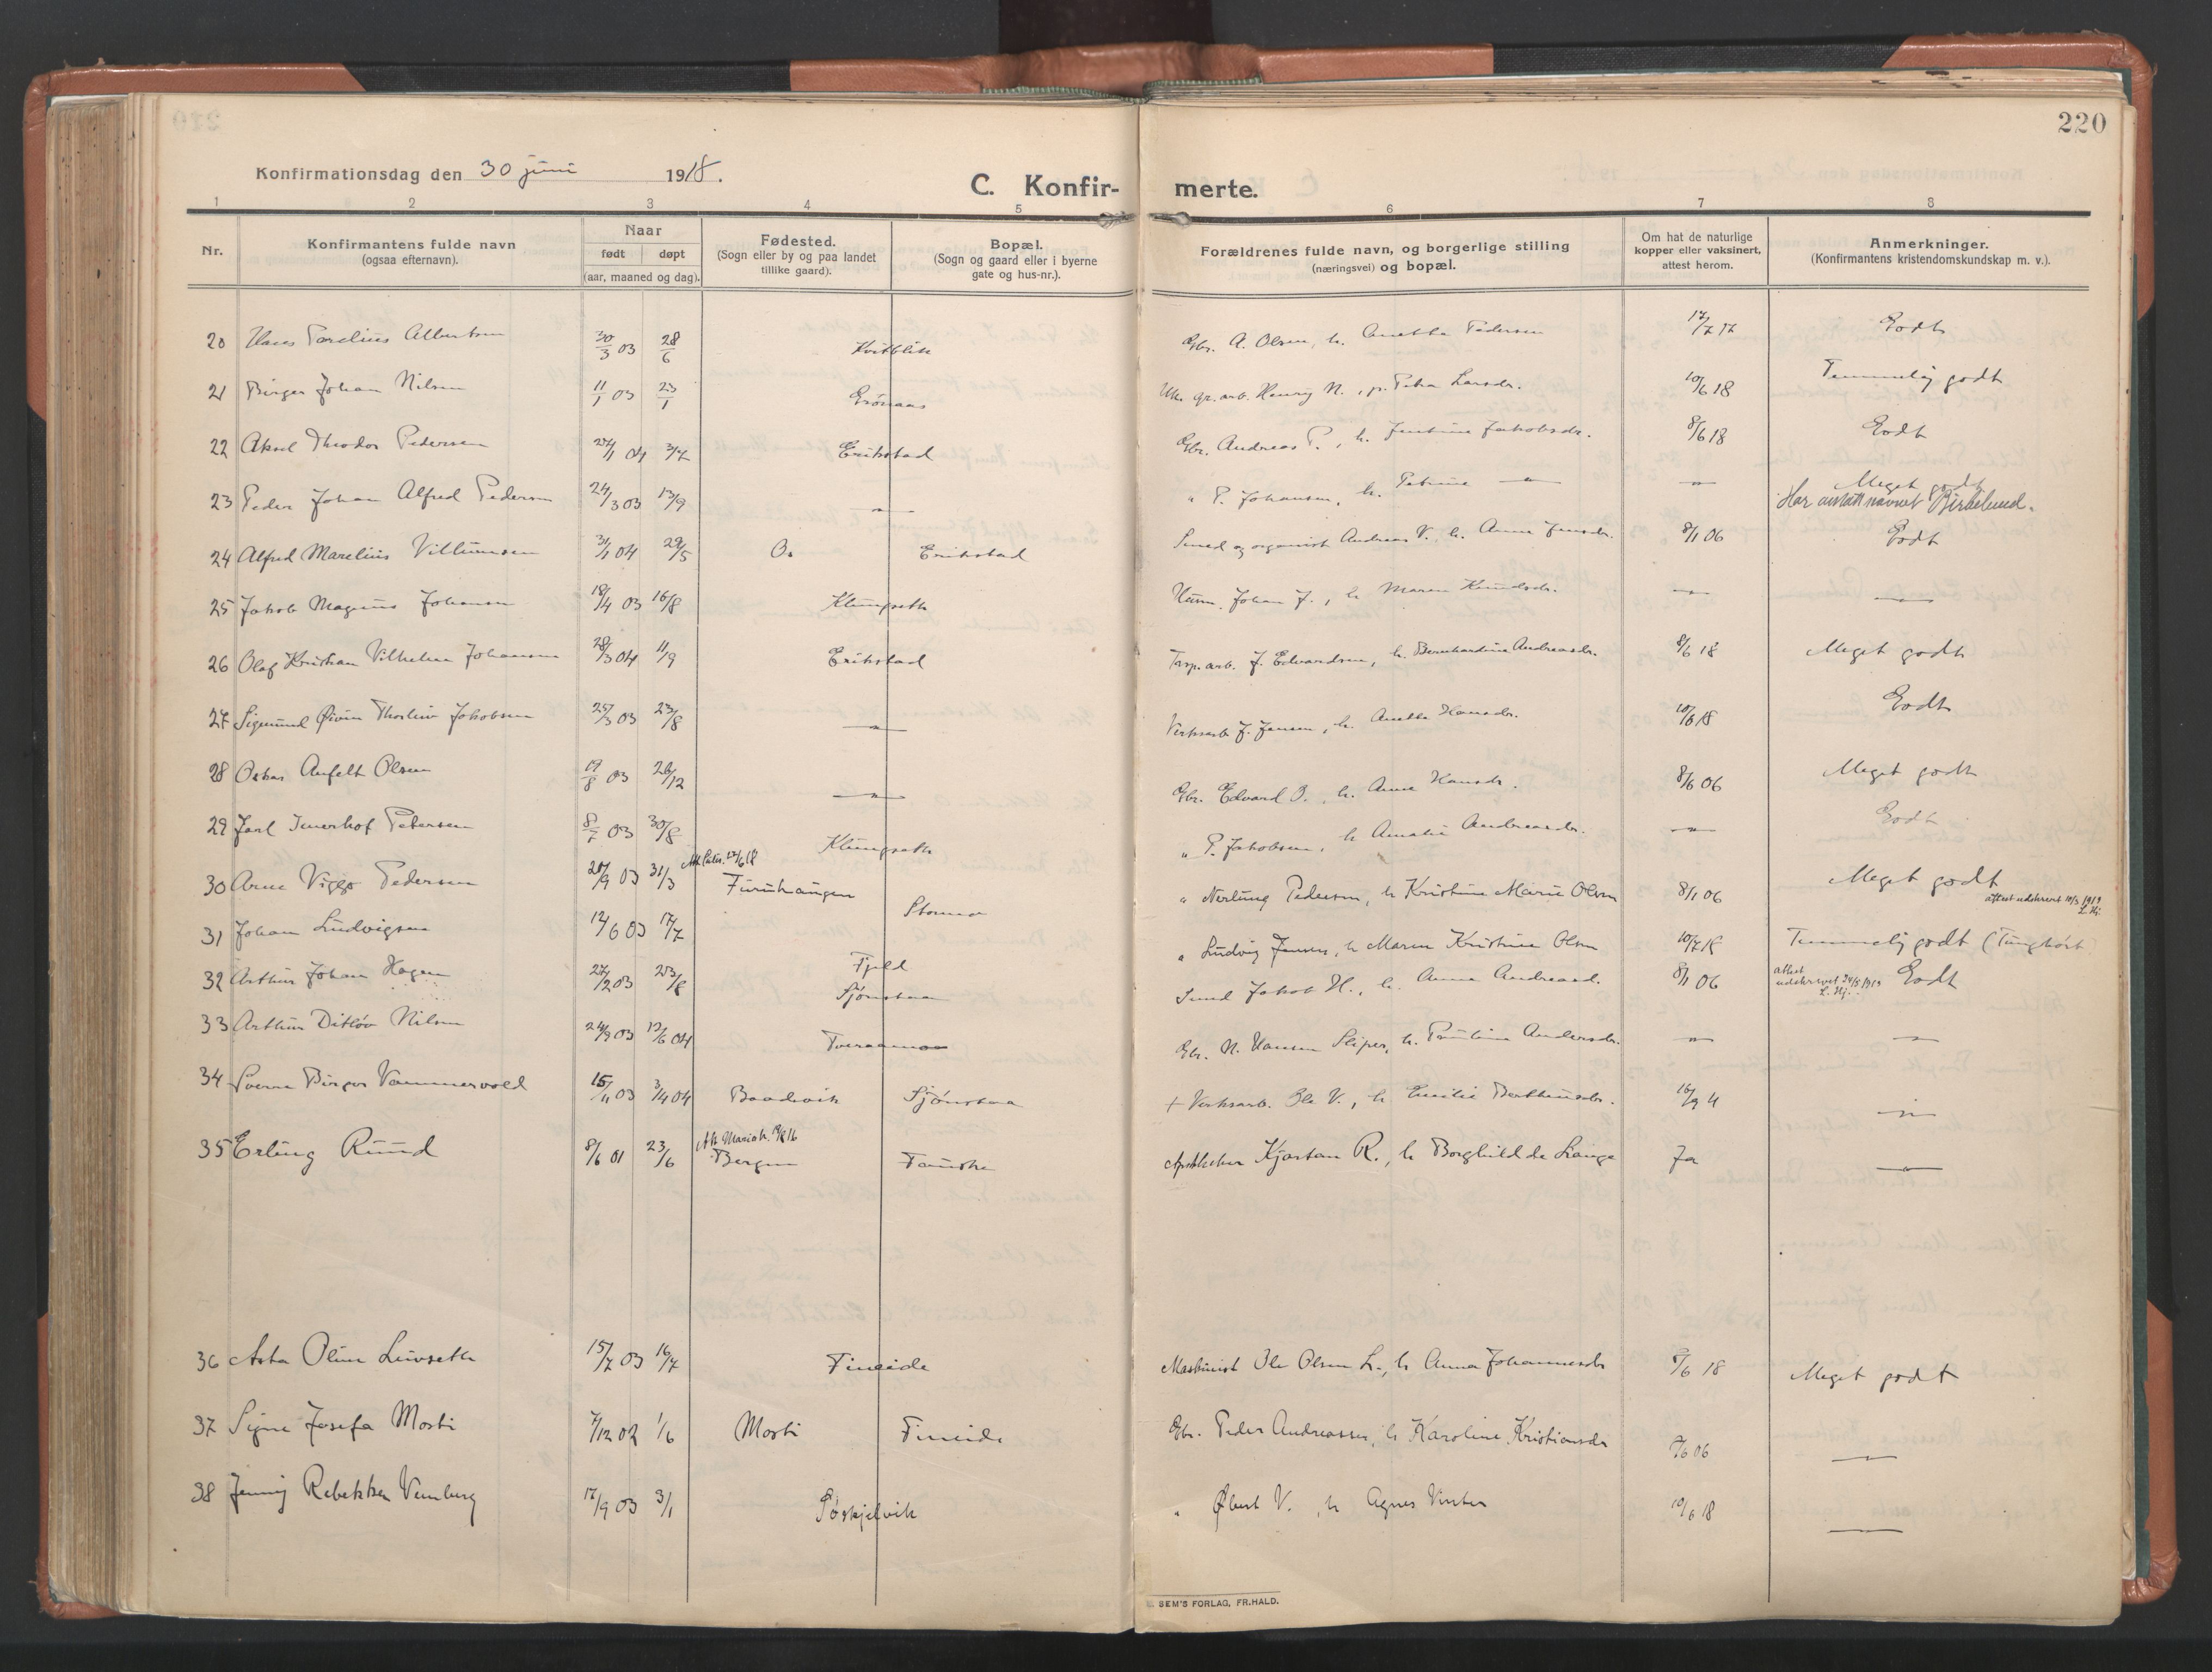 220
Konfirmationsdag den 30 juni 1918.
C. Konfir- merte.
1 2 3 4 5 6 7 8
Nr.
Konfirmantens fulde navn
(ogsaa efternavn).
Naar
født døpt
(aar, maaned og dag).
Fødested.
(Sogn eller by og paa landet
tillike gaard).
Bopæl.
(Sogn og gaard eller i byerne
gate og hus-nr.).
Forældrenes fulde navn, og borgerlige stilling
(næringsvei) og bopæl.
Om hat de naturlige
kopper eller vaksinert,
attest herom.
Anmerkninger.
(Konfirmantens kristendomskundskap m. v.).
20 Hans Parelius Albertsen 30/3 03 28/6 Kvitblik Gbr. A. Olsen, h. Anetta Pedersen 17/7 17 Godt
21 Birger Johan Nilsen 11/1 03 23/1 Grönaas gr. arb. Henrig N., p. Petra Larsdr. 10/6 18 Temmelig godt
22 Aksel Theodor Pedersen 24/1 04 3/7 Erikstad Gbr. Andreas P., h. Jentine Jakobsdr. 8/6 18 Godt
23 Peder Johan Alfred Pedersen 24/3 03 13/9 — " — " P. Johansen, h. Petrine — " — — " — Meget godt
Har antatt navnet Birkelund.
24 Alfred Marelius Villumsen 31/1 04 29/5 Os Erikstad Smed og organist Andreas V. h. Anna Jensdr. 8/1 06 Godt
25 Jakob Magnus Johansen 18/4 03 16/8 Klungseth Husm. Johan J., h. Maren Knudsdr. — " — — " —
26 Olaf Kristian Vilhelm Johansen 28/3 04 11/9 Erikstad arb. J. Edvardsen, h. Bernhardine Andreasdr. 8/6 18 Meget godt
27 Sigmund Øivin Thorleiv Jakobsen 25/3 03 23/8 — " — Verksarb J. Jensen, h. Anetta Hansdr. 10/6 18 Godt
28 Oskar Anfelt Olsen 19/8 03 26/12 — " — Gbr. Edvard O., h. Anna Hansdr. 8/6 06 Meget godt
29 Jarl Imerhof Petersen 8/7 03 30/8 Klungseth " P. Jakobsen, h Amalie Andreasdr. — " — Godt
30 Arne Viggo Pedersen 20/9 03 31/3 Furuhaugen " Nerlung Pedersen, h Kristine Marie Olsen 8/1 06 Meget godt
attest udskrevet 10/3 1919
L. Hj.
31 Johan Ludvigsen 12/6 03 17/7 Stormo " Ludvig Jensen, h Maren Kristine Olsen 10/7 18 Temmelig godt (Tunghørt)
32 Arthur Johan Hagen 27/2 03 23/8 Fjeld
Sjønstaa Smed Jakob H., h. Anna Andreasd. 8/1 06 attest
udskrevet 24/5 1919
L. Hj. Godt
33 Arthur Ditløv Nilsen 24/9 03 12/6 04 Tveraamo Gbr. N. Hansen Sliper, h. Pauline Andersdr. — " — — " —
34 Sverre Birger Vammervold 15/11 03 3/4 04 Baadsvik Sjønstaa + Verksarb. Ole V., h Emilie Bertheusdr. 16/9 11 — " —
35 Erling Ruud 8/6 01 23/6 Bergen Fauske Apotheker Kjartan R., h Borghild de Lange Ja — " —
36 Asta Oline Leivseth 15/7 03 16/7 Fineide Maskinist Ole Olsen L., h Anna Johannesdr 8/6 18 Meget godt
37 Signe Josefa Mosti 7/12 02 1/6 Mosti Fineide Gbr. Peder Andreassen, h Karoline Kristiansdr 8/6 06 — " —
38 Jenny Rebekka Venberg 17/9 03 3/1 Søskjelvik " Øbert V., h Agnes Vinter 10/6 18 — " —
SEM'S FORLAG, FR.HALD.